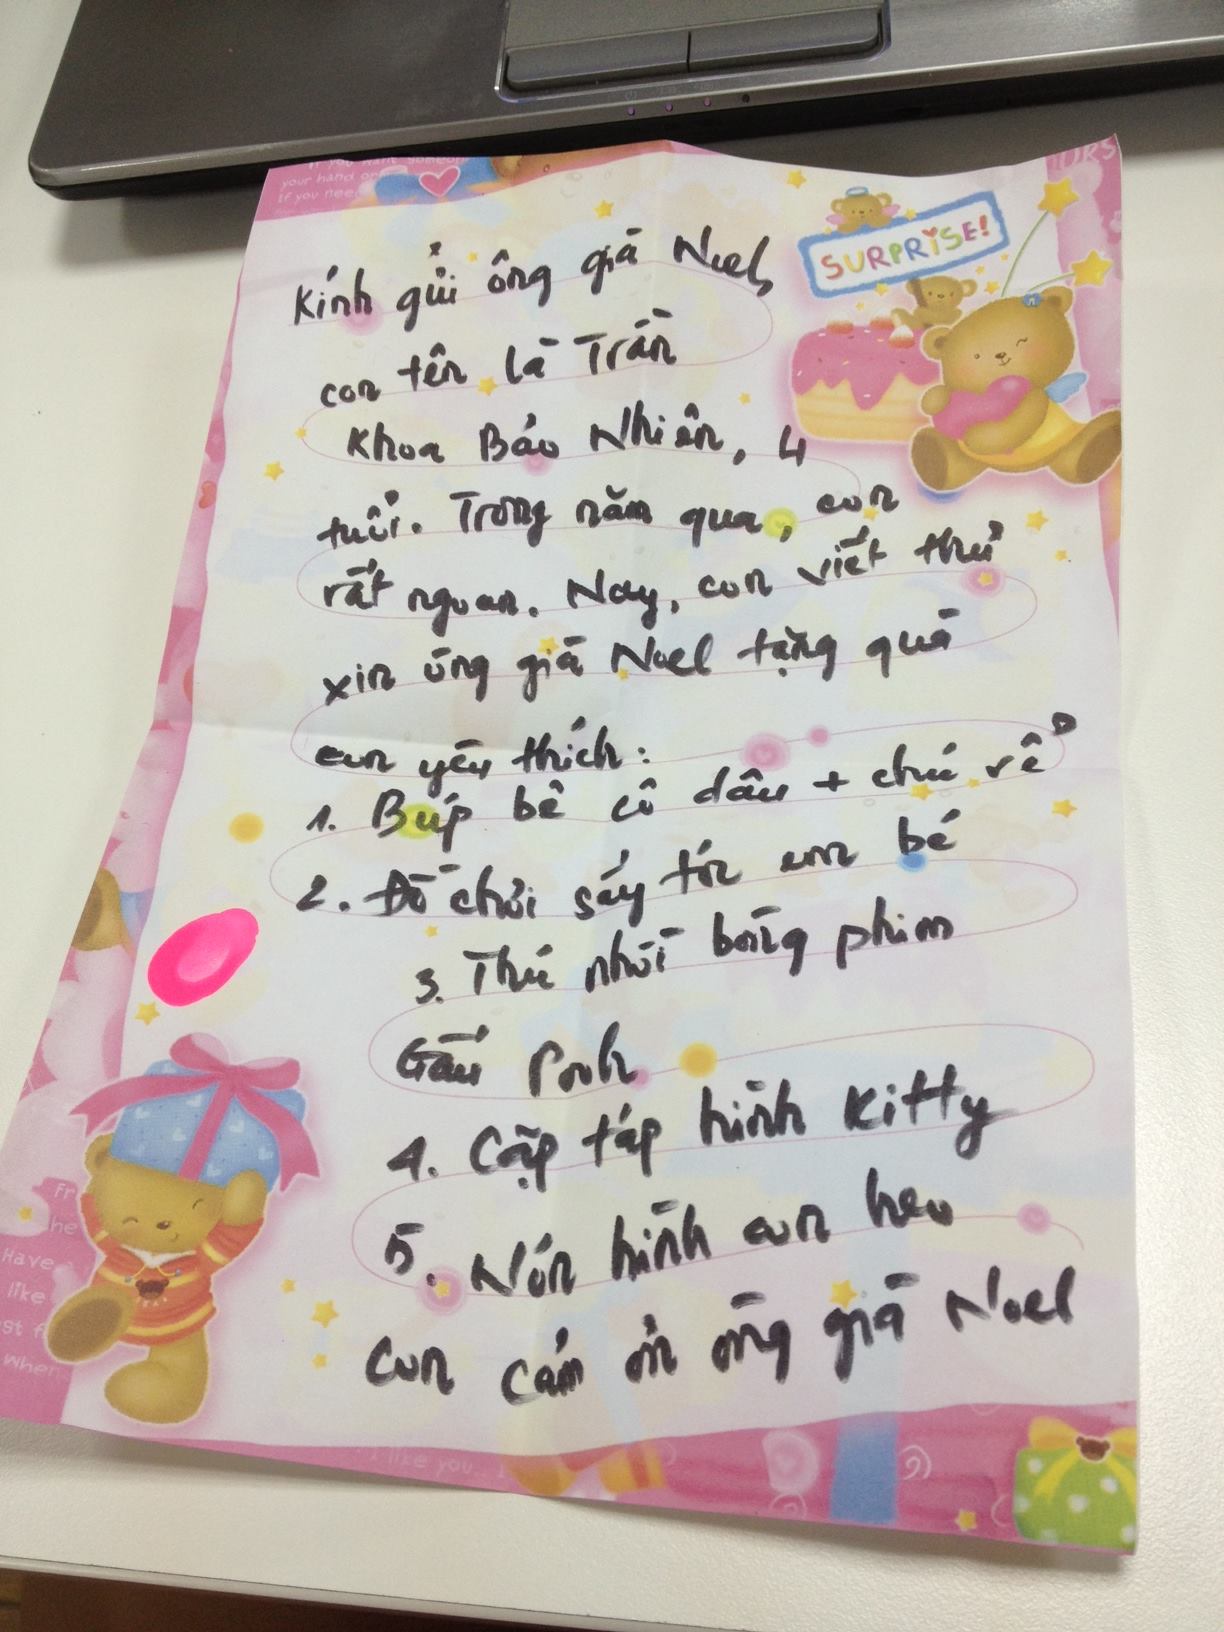 If you want someone
your hand or
if you need
SURPRISE!
Kính gửi ông già Noel,
con tên là Trần
Khoa Bảo Nhiên, 4
tuổi. Trong năm qua, con
rất ngoan. Nay, con viết thư
xin ông già Noel tặng quà
con yêu thích:
1. Búp bê cô dâu + chú rể
2. Đồ chơi sấy tóc em bé
3. Thú nhồi bông phim
Gấu Pooh
4. Cặp táp hình Kitty
5. Nón hình con heo
Con cảm ơn ông già Noel
Fr
he
Have
like
st f
when
I like you